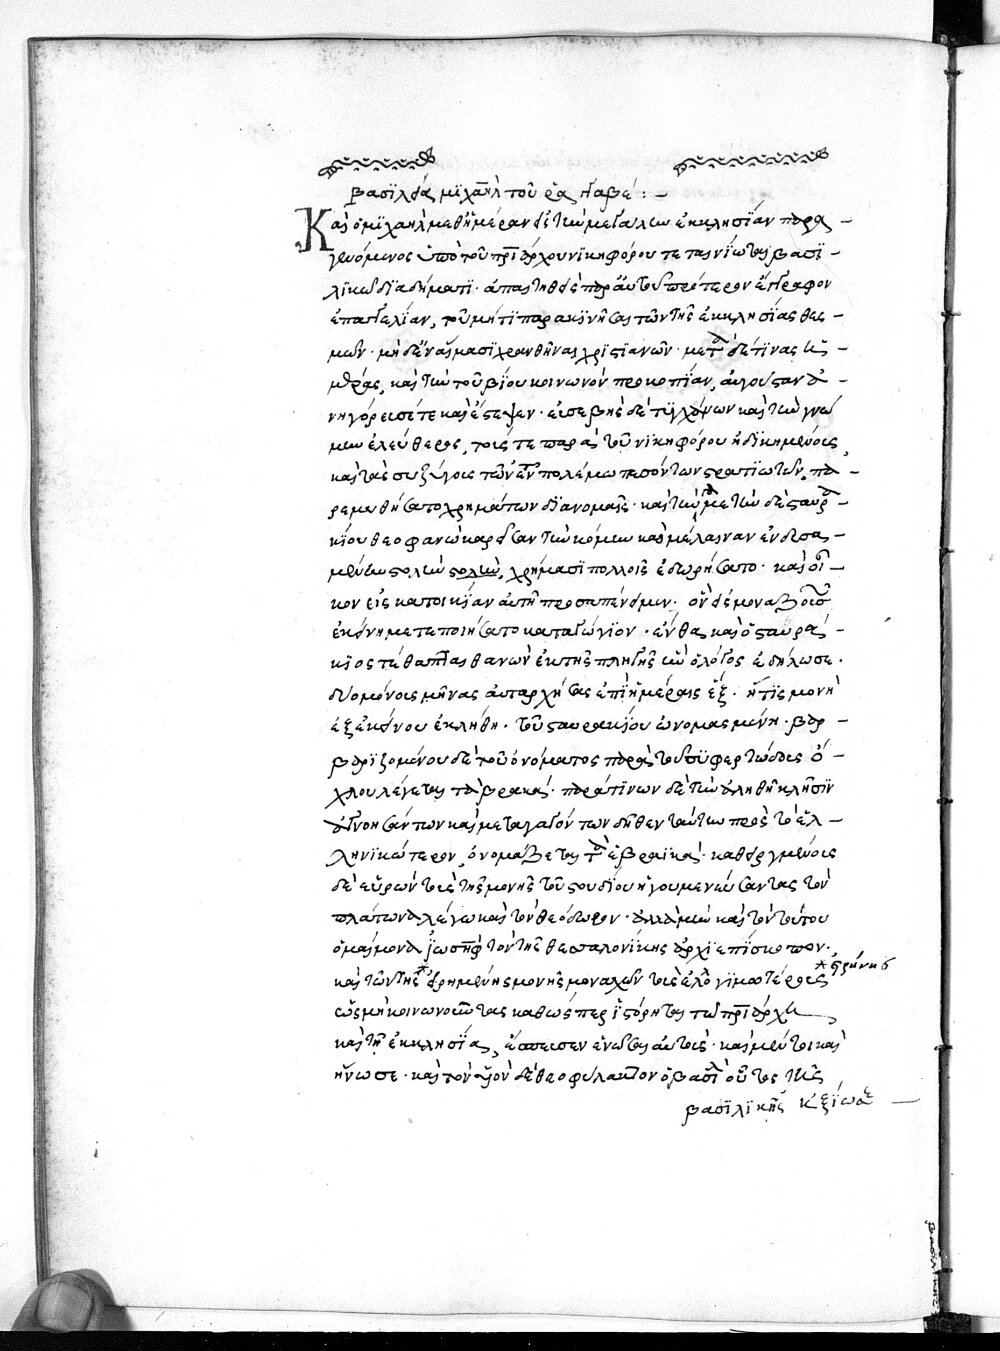 βασιλεία μιχαὴλ τοῦ ῥαγγαβέ : –
Καὶ ὁ μιχαὴλ μεθ' ἡμέραν ἐς τὴν μεγάλην ἐκκλησίαν παρα –
γενόμενος ὑπὸ τοῦ πριάρχου νικηφόρου τε ταινιῶται βασι –
λικῶ διαδήματι· ἀπαιτηθεὶς παρ αὐτοῦ πρότερον ἔγγραφον
ἐπαγγελίαν, τοῦ μήτι παρακινῆσαι τῶν τῆς ἐκκλησίας θεσ –
μῶν· μὴ δὲν αἵμασι χρανθῆναι χριστιανῶν· μετὰ δέ τινας κỳ –
μέρας, καὶ τὴν τοῦ βίου κοινωνὸν προκοπίαν, αὐγούσταν ἀ –
νηγόρευσέ τε καὶ ἔστεψεν· εὐσεβὴς δὲ τυγχάνων καὶ τὴν γνώ
μην ἐλεύθερος, τοῖς τε παρὰ τοῦ νικηφόρου ἠδικημένοις,
καὶ ταῖς συζύγοις τῶν ἐν πολέμω πεσόντων στρατιωτῶν, πα –
ρεμυθήσατο χρημάτων διανομαῖς· καὶ τὴν γαμετὴν δὲ σταυρα –
κίου θεοφανὼ καρεῖσαν τὴν κόμην καὶ μέλαιναν ἐνδυσα –
μένην στολὴν στολὴν, χρήμασι πολλοῖς ἐδωρήσατο· καὶ οἶ –
κον εἰς κατοικίαν αὐτῆ προσαπένειμεν· ὃν εἰς μοναζούσαις
ἐκείνη μετεποιήσατο καταγώγιον· ἔνθα καὶ ὁ σταυρά –
κιος τέθαπται θανὼν ἐκ τῆς πληγῆς ὡς ὁ λόγος ἐδήλωσε·
δύο μόνοις μῆνας αὐταρχήσας ἐπὶ ἡμέραις ἕξ· ἥτις μονὴ
ἐξ ἐκείνου ἐκλήθη· τοῦ σταυρακίου ὠνομασμένη· βαρ –
βαριζομένου δὲ τοῦ ὀνόματος παρὰ τοῦ συφερτώδεις ὄ –
χλου λέγεται τὰ βρακά· παρά τινων δὲ τὴν ἀληθῆ κλῆσιν
ἀγνοησάντων καὶ μεταγαγόντων δῆθεν ταύτην πρὸς τὸ ἑλ –
ληνικώτερον, ὀνομάζεται τὰ ἑβραϊκά· καθειργμένοις
δὲ εὑρὼν τοὺς τῆς μονῆς τοῦ στουδίου ἡγουμενεύσαντας τὸν
πλάτωνα λέγω καὶ τὸν θεόδωρον· ἀλλὰ μὴν καὶ τὸν τούτου
ὁμαίμονα ἰωσὴφ τὸν τῆς θεσσαλονίκης ἀρχιεπίσκοπον·
* εἰρήνης
καὶ τῶν τῆς * εἰρημένης μονῆς μοναχῶν τοὺς ἐλλογιμωτέρους
ὡς μὴ κοινωνοῦντας καθὼς περ ἱστόρηται τῶ πριάρχη
καὶ τῆ ἐκκλησία, ἔπεισεν ἑνῶσαι αὐτοὺς· καὶ μέν τοι καὶ
ἥνωσε· καὶ τὸν υἱὸν δὲ θεοφύλακτον ὁ βασιλ οὗτος τῆς
βασιλικῆς ἠξίωσε –